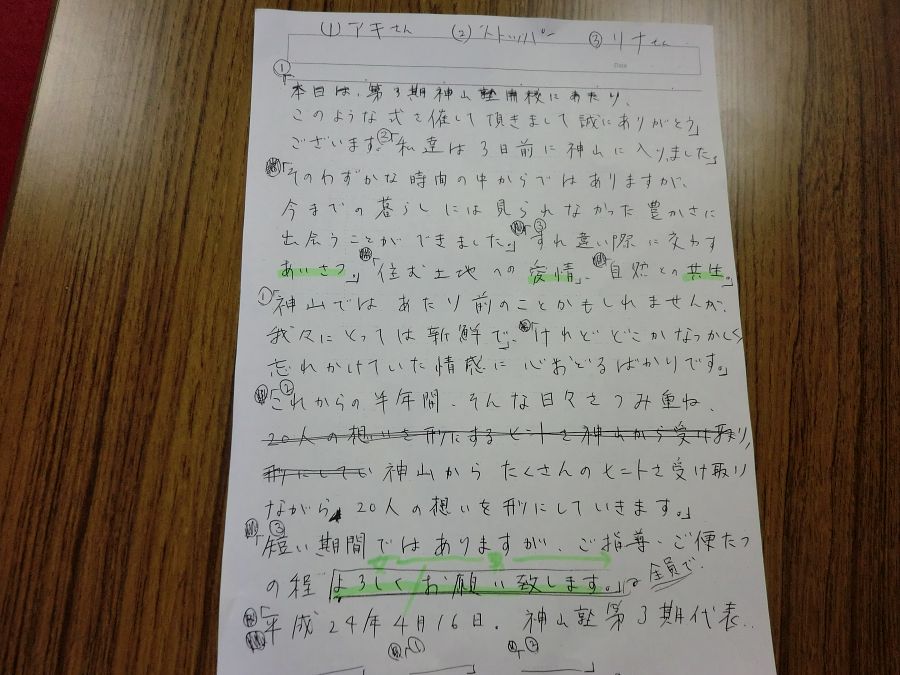 (1) アキさん (2) ストッパー ③ リナさん
Date
①
「本日は、第3期神山塾開校にあたり、
このような式を催して頂きまして誠にありがとう
ございます。」②「私達は3日前に神山に入りました」
「そのわずかな時間の中からではありますが、
今までの暮らしには見られなかった豊かさに
出会うことができました。」③「すれ違い際に交わす
あいさつ。」「住む土地への愛情」、「自然との共生。」
①「神山ではあたり前のことかもしれませんが、
我々にとっては新鮮で」、「けれどどこかなつかしく
忘れかけていた情感に心おどるばかりです。」
②「これからの半年間、そんな日々をつみ重ね、
20人の想いを形にするヒントを神山から受け取り、
形にしてい 神山からたくさんのヒントを受け取り
ながら、20人の想いを形にしていきます。」
③「短い期間ではありますが ご指導・ご便たつ
の程 よろしくお願い致します。」 全員で
「平成24年4月16日、神山塾第3期代表
「① 「②